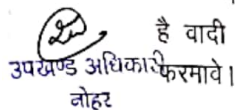 है वादी
उपखण्ड अधिकारी फरमावे।
नोहर